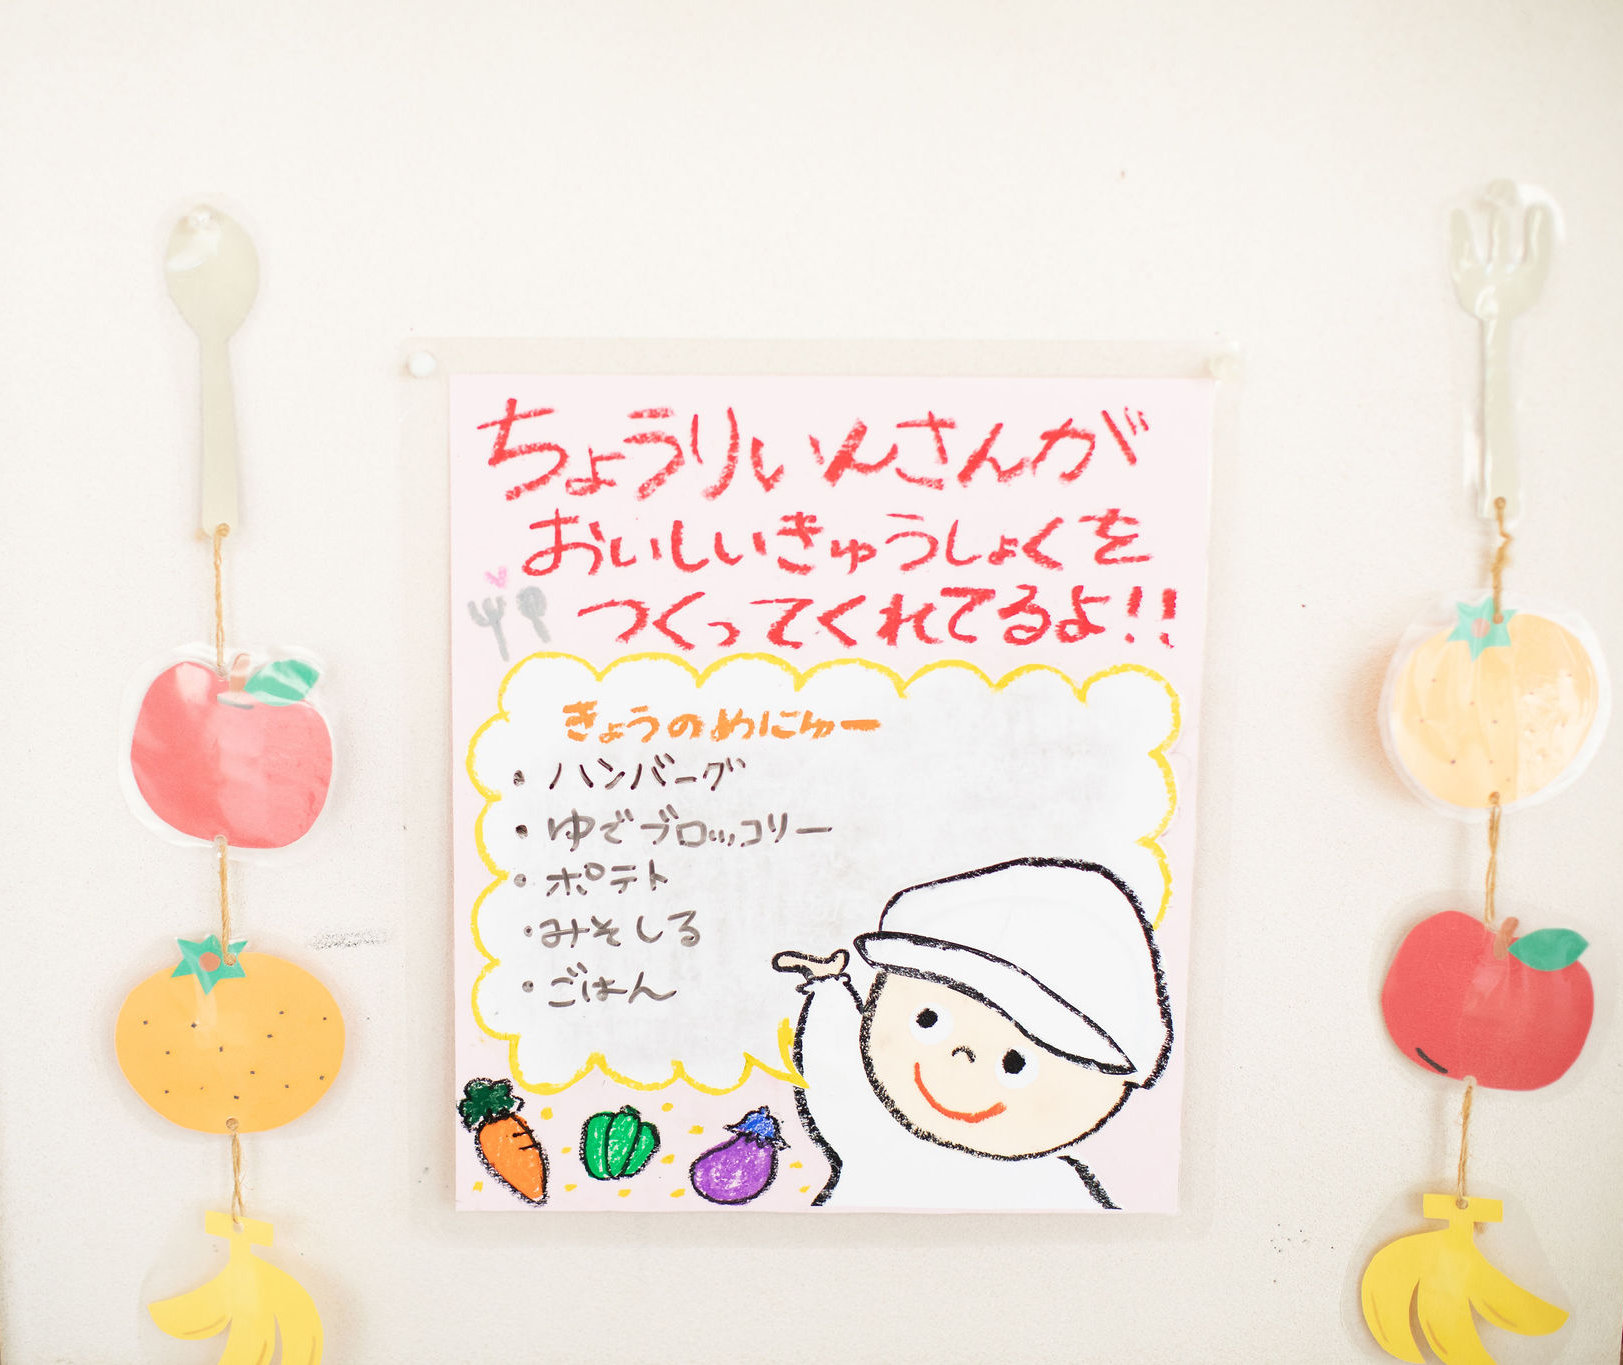 ちょうりいんさんが
おいしいきゅうしょくを
つくってくれてるよ!!
きょうのめにゅー
・ハンバーグ
・ゆでブロッコリー
・ポテト
・みそしる
・ごはん